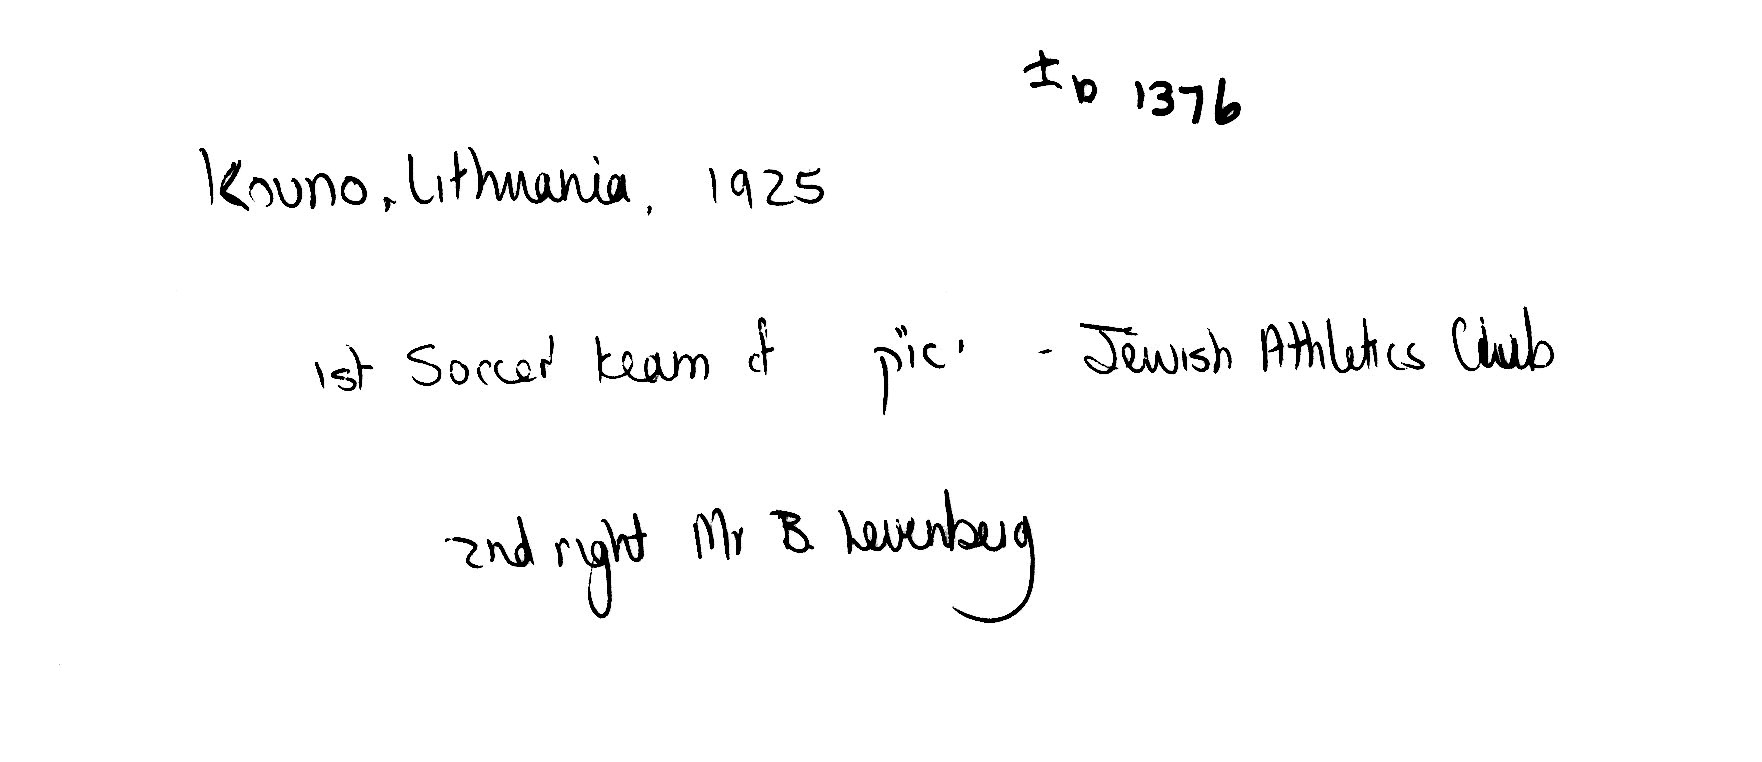 ID 1376
Kovno, Lithuania, 1925
1st Soccer team of יא"ק - Jewish Athletics Club
2nd right Mr B. Levenberg